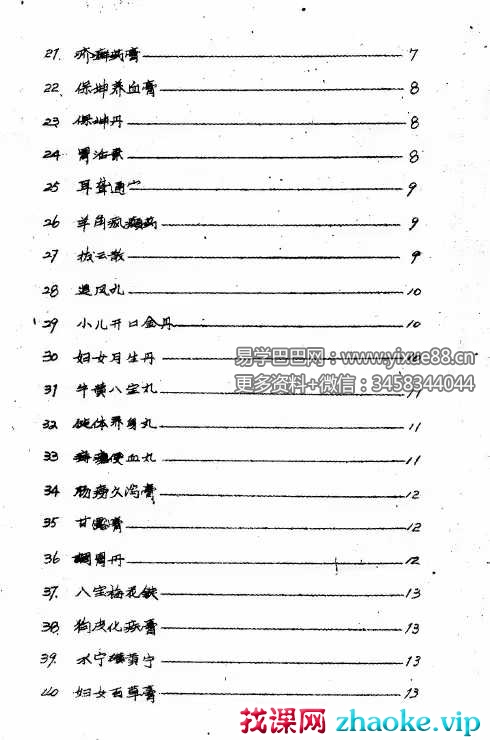 21. 疥癣药膏 7
22. 保坤养血膏 8
23. 保坤丹 8
24 胃治灵 8
25 耳聋通窍 9
26 羊角疯癫药 9
27 拔云散 9
28 追风丸 10
29 小儿开口金丹 10
30 妇女月生丹 10
易学巴巴网：www.yixue88.cn
31 牛黄八宝丸 11
更多资料+微信：3458344044
32 体养身丸 11
33 便血丸 11
34 肠痨久泻膏 12
35 甘露膏 12
36 胃丹 12
37. 八宝梅花 13
38. 狗皮化痰膏 13
39. 水宁黄宁 13
40 妇女百草膏 13
找课网 zhaoke.vip